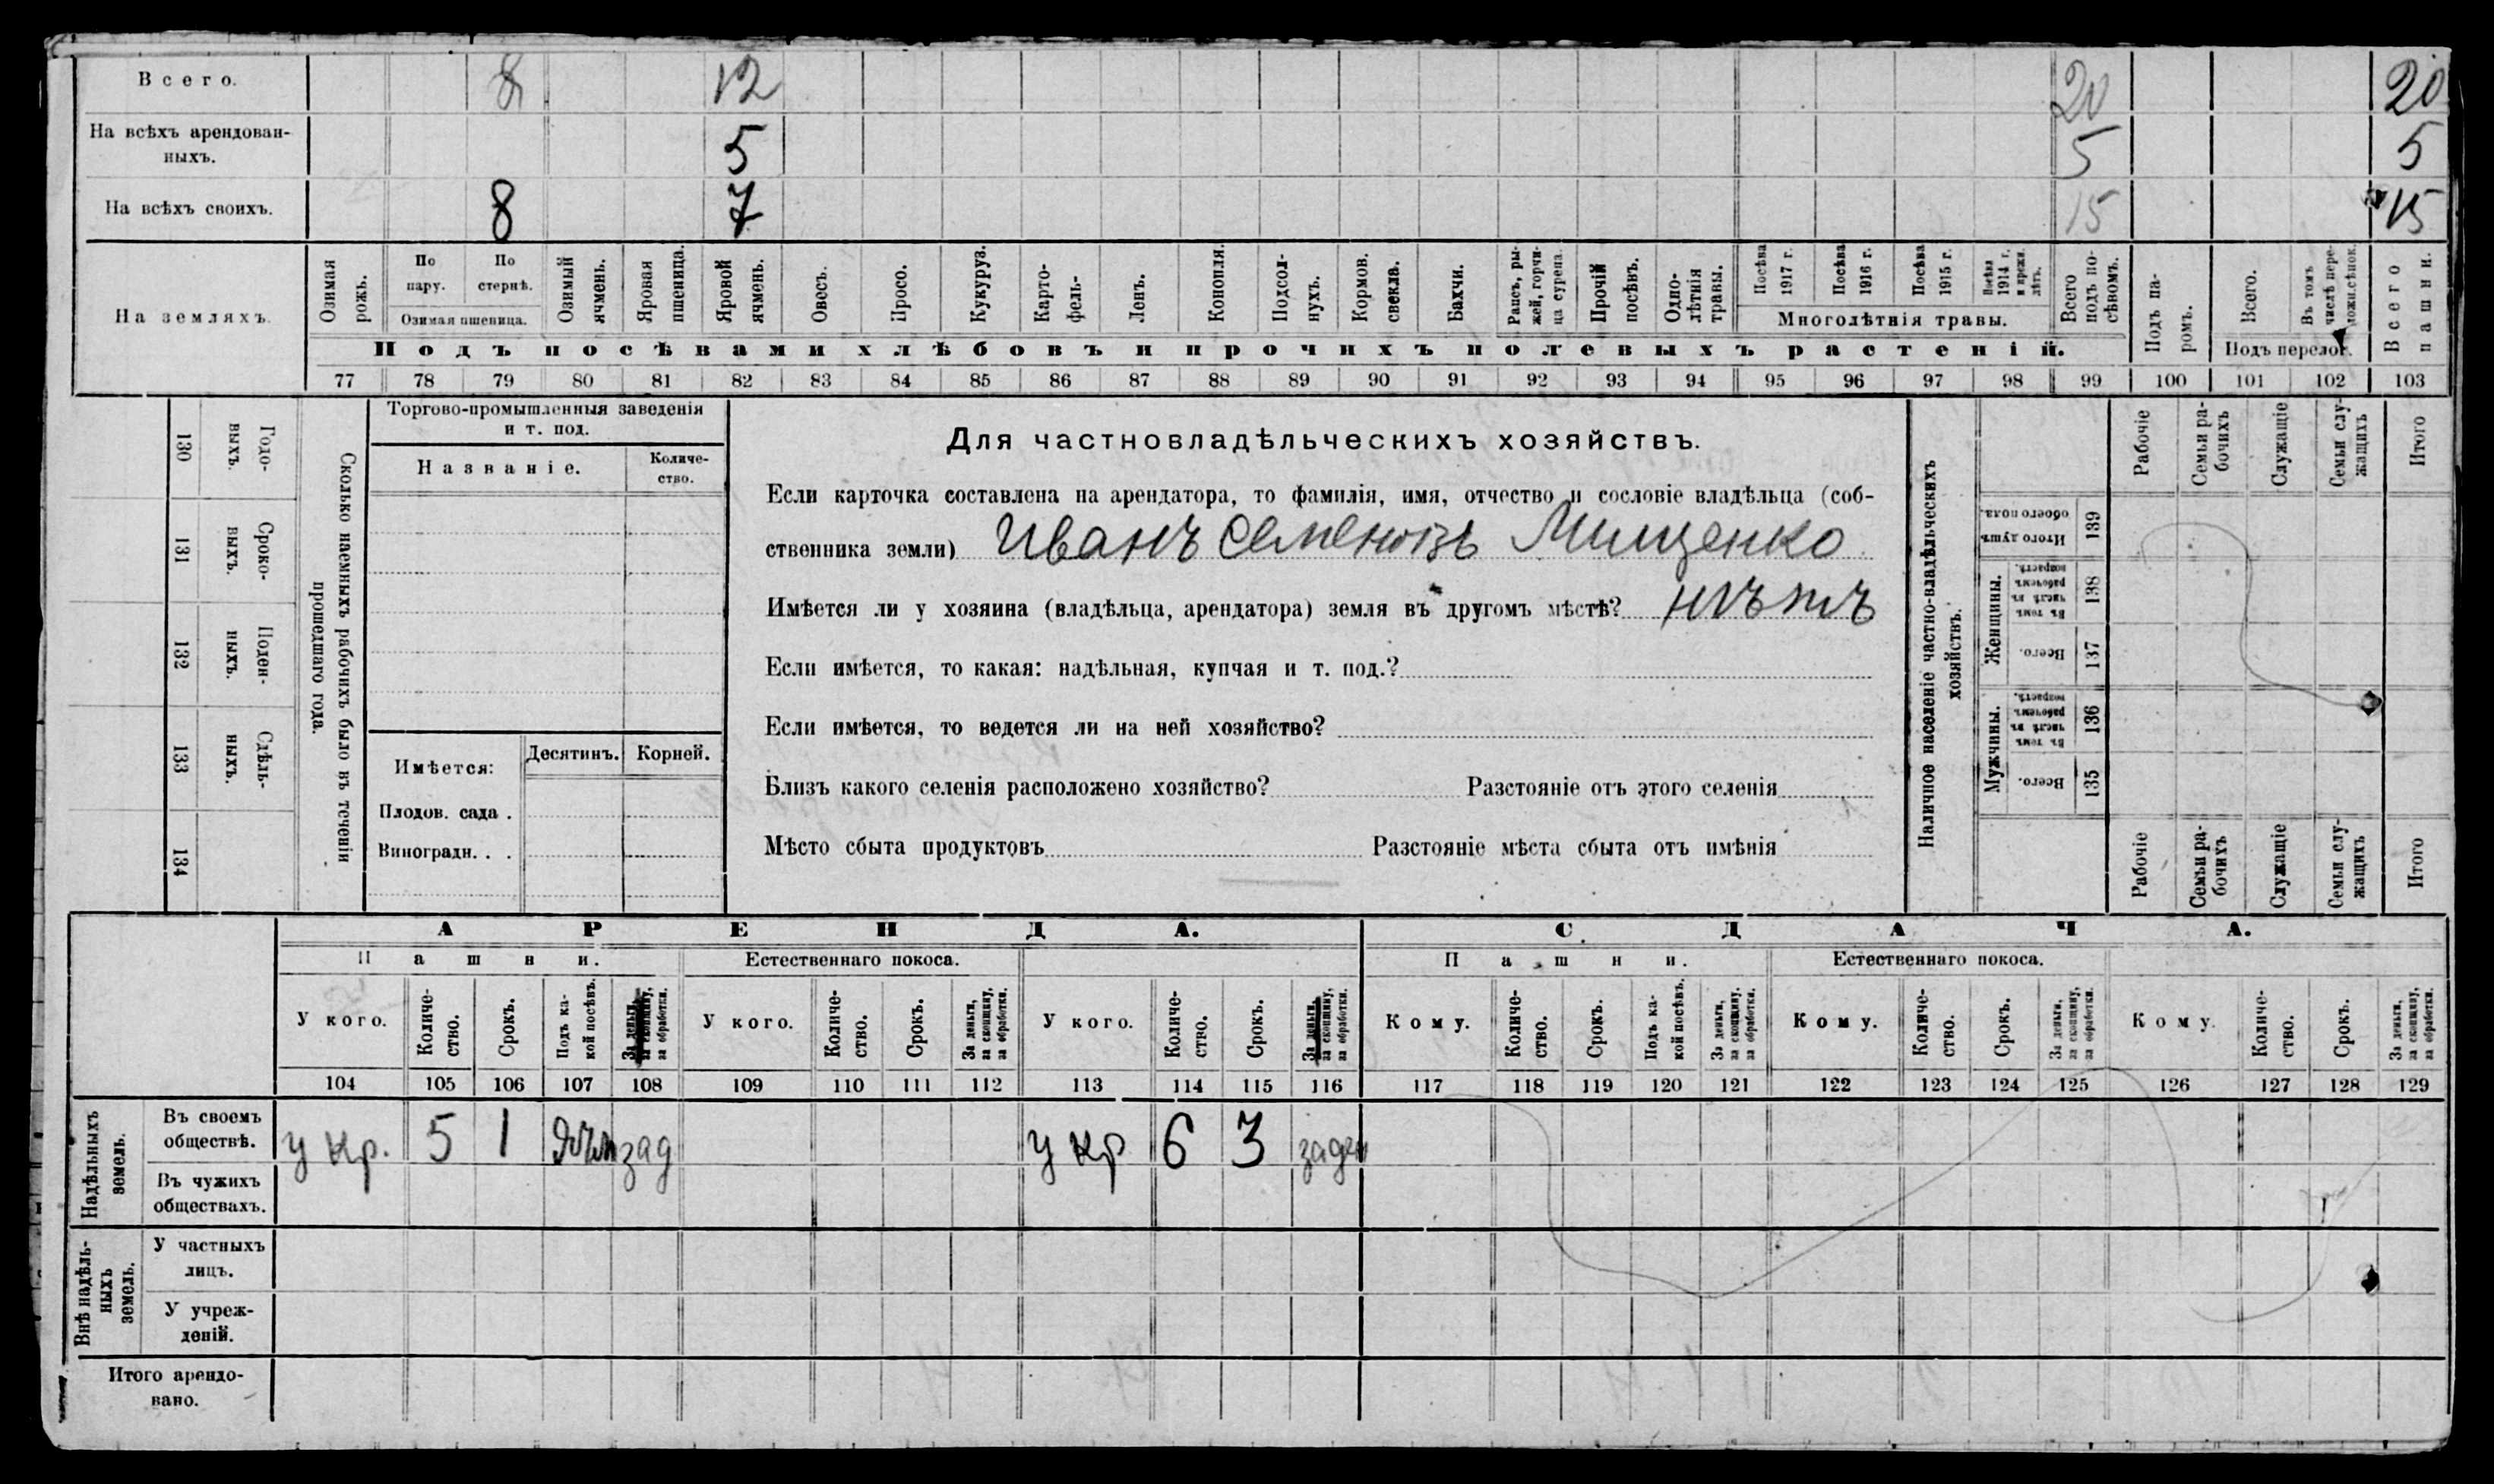 Всего. 8 12 20 20
На всѣхъ арендован-
ныхъ. 5 5 5
На всѣхъ своихъ. 8 7 15 15
На земляхъ.
Озимая рожь.
По пару.
По стернѣ.
Озимая пшеница.
Озимый ячмень.
Яровая пшеница.
Яровой ячмень.
Овесъ.
Просо.
Кукуруз.
Карто-
фель.
Ленъ.
Конопля.
Подсол-
нухъ.
Кормов. свекла.
Бахчи.
Рапсъ, ры-
жей, горчи-
ца сурепа.
Прочій посѣвъ.
Одно-
лѣтнія
травы.
Посѣва 1917 г.
Посѣва 1916 г.
Посѣва 1915 г.
Посѣва 1914 г. и прежн. лѣтъ.
Многолѣтнія травы.
Всего подъ по-
сѣвомъ.
Подъ па-
ромъ.
Всего.
Въ томъ числѣ пере-
Подъ перелог.
Всего пашни.
Подъ посѣвами хлѣбовъ и прочихъ полевыхъ растеній.
77 78 79 80 81 82 83 84 85 86 87 88 89 90 91 92 93 94 95 96 97 98 99 100 101 102 103
Сколько наемныхъ рабочихъ было въ теченіи
прошедшаго года.
Годо-
выхъ.
130
Сроко-
выхъ.
131
Поден-
ныхъ.
132
Сдѣль-
ныхъ.
133
134
Торгово-промышленныя заведенія
и т. под.
Названіе.
Количе-
ство.
Имѣется:
Десятинъ. Корней.
Плодов. сада .
Виноградн. . .
Для частновладѣльческихъ хозяйствъ.
Если карточка составлена на арендатора, то фамилія, имя, отчество и сословіе владѣльца (соб-
ственника земли) Иванъ Семеновъ Мищенко
Имѣется ли у хозяина (владѣльца, арендатора) земля въ другомъ мѣстѣ? нѣтъ
Если имѣется, то какая: надѣльная, купчая и т. под.?
Если имѣется, то ведется ли на ней хозяйство?
Близъ какого селенія расположено хозяйство? Разстояніе отъ этого селенія
Мѣсто сбыта продуктовъ Разстояніе мѣста сбыта отъ имѣнія
Наличное населеніе частно-владѣльческихъ
хозяйствъ.
Рабочіе
Семьи ра-
бочихъ
Служащіе
Семьи слу-
жащихъ
Итого
Итого душъ
обоего пола.
139
Женщины.
Въ томъ
числѣ въ
рабочемъ
возрастѣ.
138
Всего.
137
Мужчины.
Въ томъ
числѣ въ
рабочемъ
возрастѣ.
136
Всего.
135
Рабочіе
Семьи ра-
бочихъ
Служащіе
Семьи слу-
жащихъ
Итого
АРЕНДА. СДАЧА.
Пашни. Естественнаго покоса. Пашни. Естественнаго покоса.
У кого.
Количе-
ство.
Срокъ.
Подъ ка-
кой посѣвъ.
За деньги,
за скопщину,
за обработки.
У кого.
Количе-
ство.
Срокъ.
За деньги,
за скопщину,
за обработки.
У кого.
Количе-
ство.
Срокъ.
За деньги,
за скопщину,
за обработки.
Кому.
Количе-
ство.
Срокъ.
Подъ ка-
кой посѣвъ.
За деньги,
за скопщину,
за обработки.
Кому.
Количе-
ство.
Срокъ.
За деньги,
за скопщину,
за обработки.
Кому.
Количе-
ство.
Срокъ.
За деньги,
за скопщину,
за обработки.
104 105 106 107 108 109 110 111 112 113 114 115 116 117 118 119 120 121 122 123 124 125 126 127 128 129
Надѣльныхъ
земель.
Въ своемъ
обществѣ. у кр. 5 1 зад у кр 6 3 заден
Въ чужихъ
обществахъ.
Внѣ надѣль-
ныхъ
земель.
У частныхъ
лицъ.
У учреж-
деній.
Итого арендо-
вано.